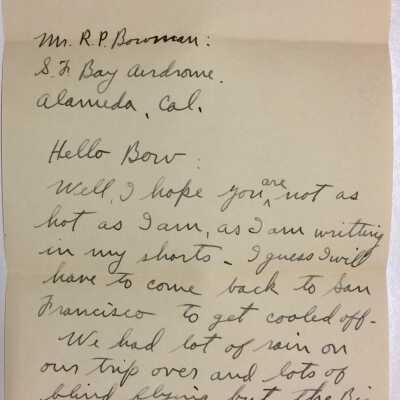 Mr. R.P. Bowman:
S.F. Bay Airdrome.
Alameda, Cal.
Hello Bow:
Well, I hope you are not as
hot as I am, as I am writting
in my shorts - I guess I will
have to come back to San
Francisco to get cooled off -
We had lot of rain on
our trip over and lots of
blind flying but the Big